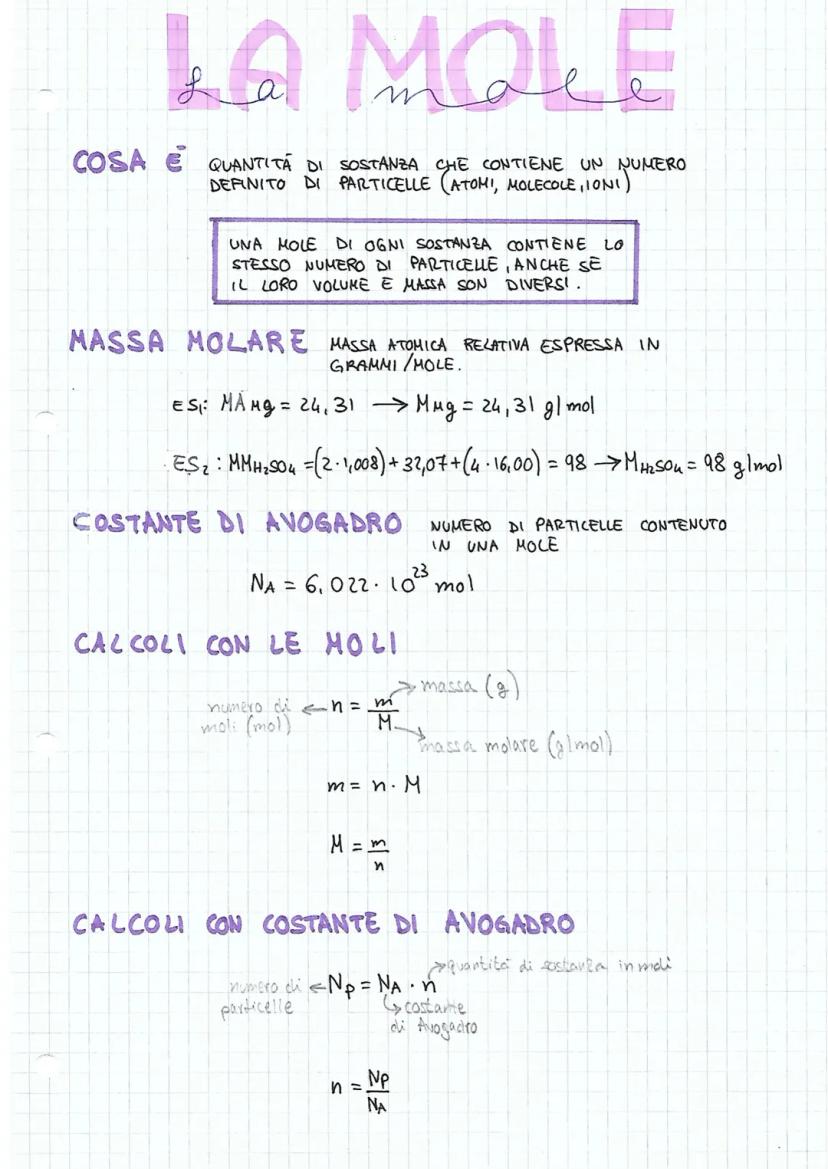 LA MOLE
La mole
COSA È QUANTITÀ DI SOSTANZA CHE CONTIENE UN NUMERO
DEFINITO DI PARTICELLE (ATOMI, MOLECOLE, IONI)
UNA MOLE DI OGNI SOSTANZA CONTIENE LO
STESSO NUMERO DI PARTICELLE, ANCHE SE
IL LORO VOLUME E MASSA SON DIVERSI.
MASSA MOLARE MASSA ATOMICA RELATIVA ESPRESSA IN
GRAMMI/MOLE.
ES₁: MA Mg = 24,31 → M Mg = 24,31 g/mol
ES₂: MM H₂SO₄ = (2·1,008)+32,07+(4·16,00) = 98 → M H₂SO₄ = 98 g/mol
COSTANTE DI AVOGADRO NUMERO DI PARTICELLE CONTENUTO
IN UNA MOLE
NA = 6,022·10²³ mol
CALCOLI CON LE MOLI
→ massa (g)
numero di ← n = m/M
moli (mol)
→ massa molare (g/mol)
m = n·M
M = m/n
CALCOLI CON COSTANTE DI AVOGADRO
→ quantità di sostanza in moli
numero di ← Np = NA · n
particelle ↳ costante
di Avogadro
n = Np/NA